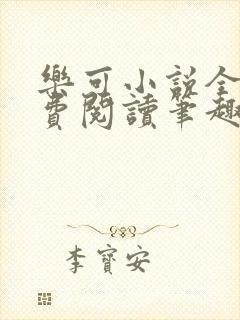 樂可小說全
費閱讀筆趣
李寶安